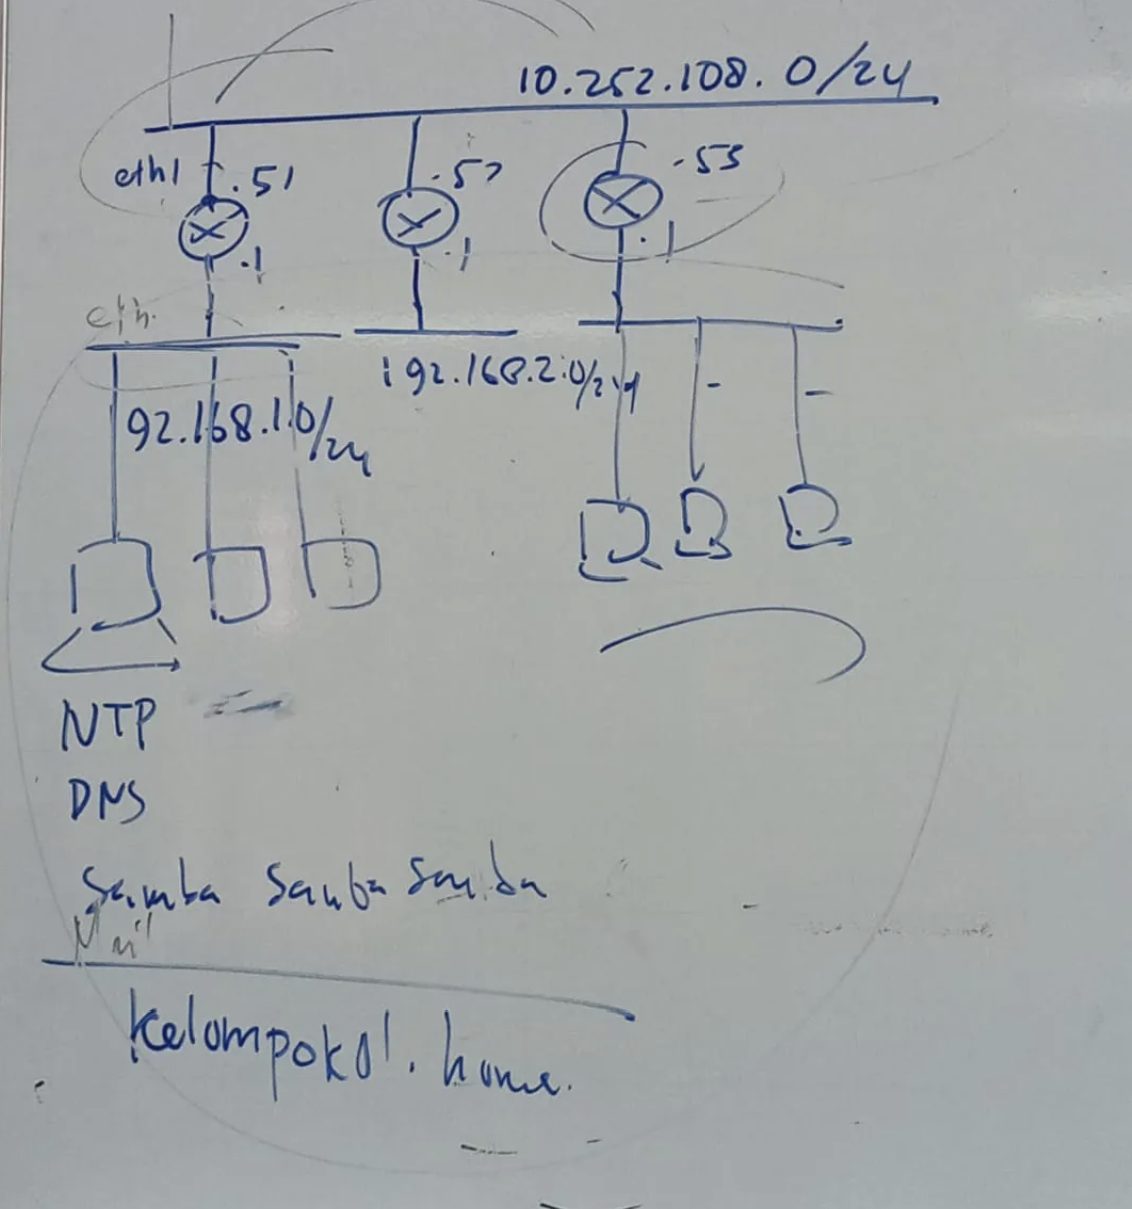 10.252.108.0/24
eth1 .51 .52 .53
.1 .1 .1
eth
192.168.2.0/24
92.168.1.0/24
NTP
DNS
Samba Samba Samba
Mail
Kelompok01.home.